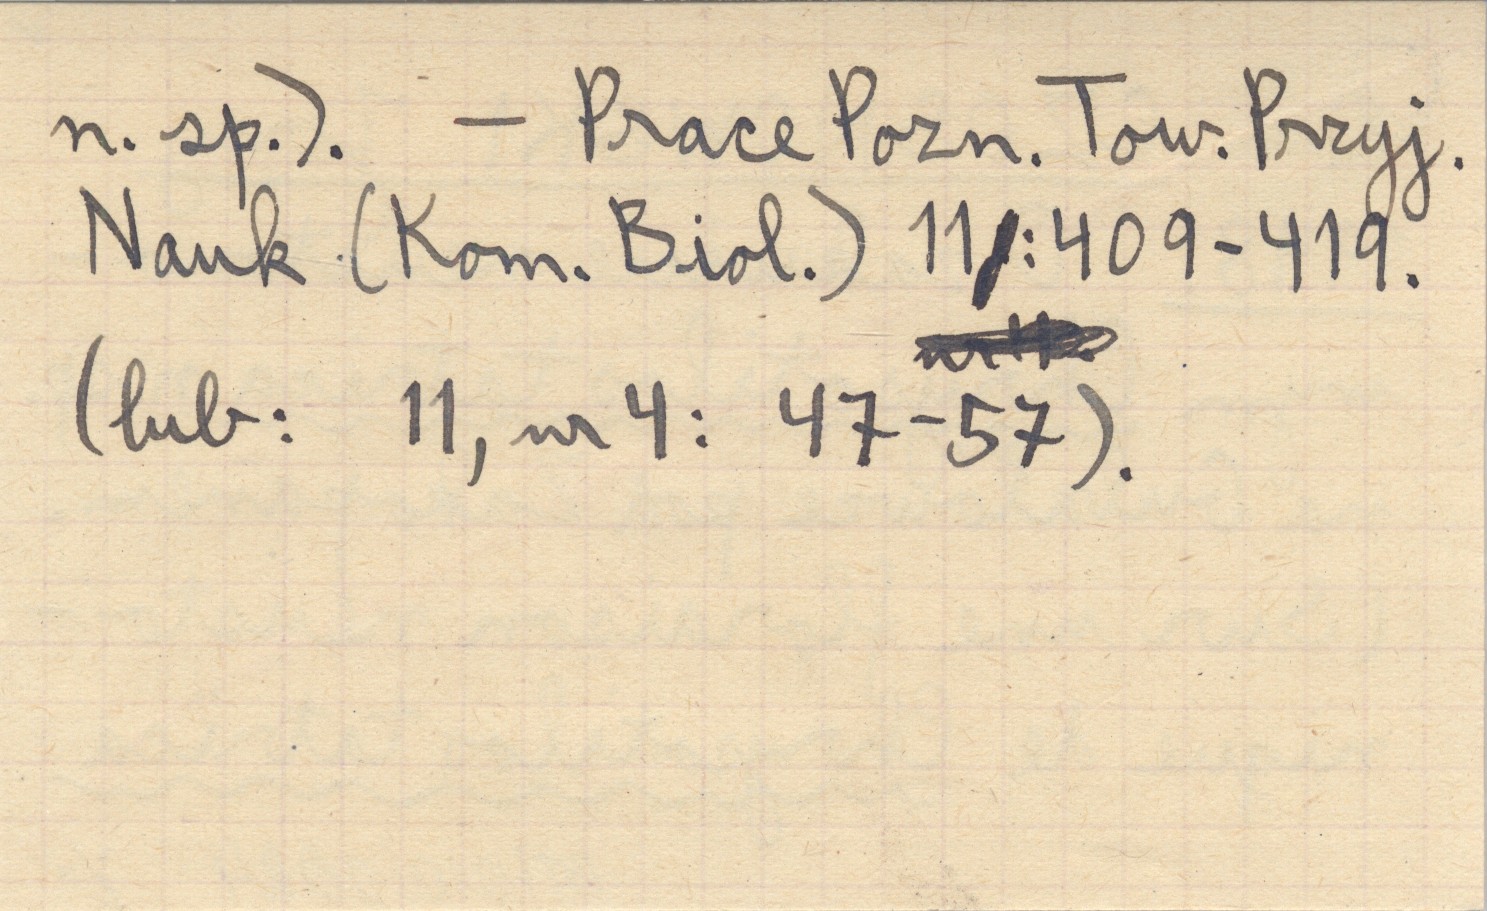 n. sp.). — Prace Pozn. Tow. Przyj.
Nauk (Kom. Biol.) 11 : 409-419.
(lub: 11, nr 4: 47-57).